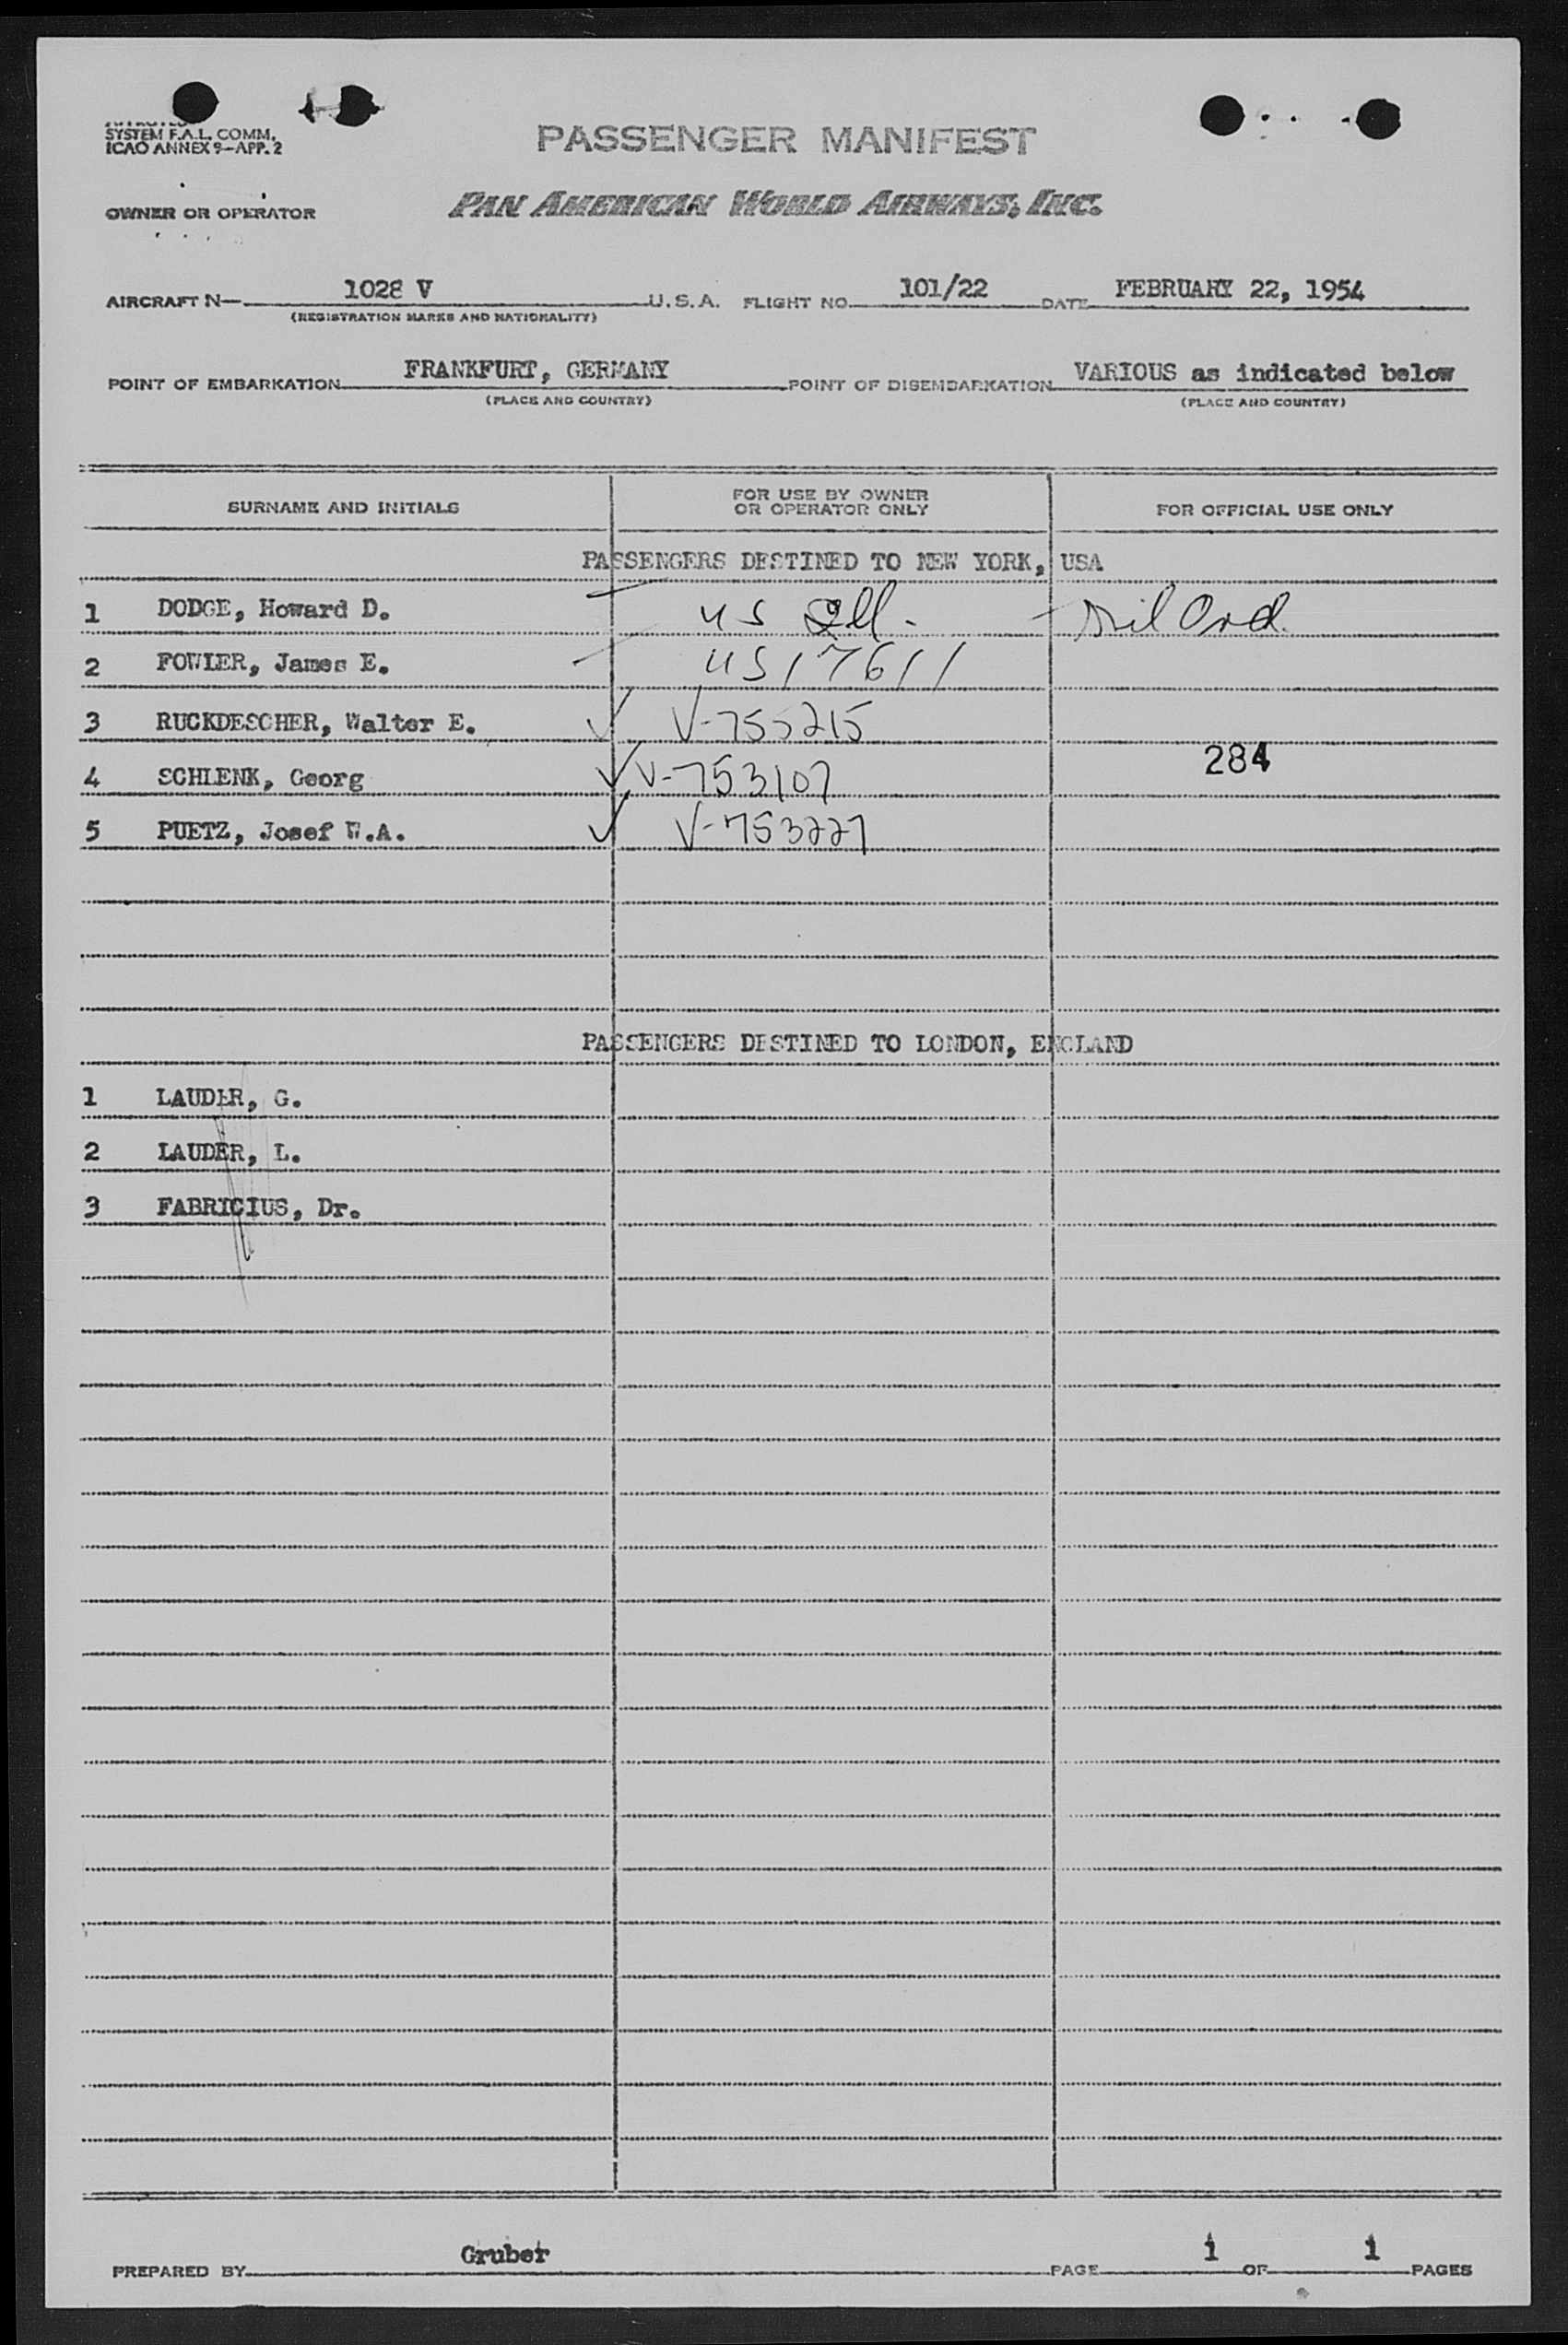 SYSTEM F.A.L. COMM.
ICAO ANNEX 9—APP. 2
PASSENGER MANIFEST
OWNER OR OPERATOR
PAN AMERICAN WORLD AIRWAYS, INC.
AIRCRAFT N— 1028 V U.S.A. FLIGHT NO. 101/22 DATE FEBRUARY 22, 1954
(REGISTRATION MARKS AND NATIONALITY)
POINT OF EMBARKATION FRANKFURT, GERMANY POINT OF DISEMBARKATION VARIOUS as indicated below
(PLACE AND COUNTRY) (PLACE AND COUNTRY)
SURNAME AND INITIALS FOR USE BY OWNER OR OPERATOR ONLY FOR OFFICIAL USE ONLY
PASSENGERS DESTINED TO NEW YORK, USA
1 DODGE, Howard D. US Ill. Mil Ord.
2 FOWLER, James E. US 17611
3 RUCKDESCHER, Walter E. V-755215
284
4 SCHLENK, Georg V-753107
5 PUETZ, Josef W.A. V-753227
PASSENGERS DESTINED TO LONDON, ENGLAND
1 LAUDER, G.
2 LAUDER, L.
3 FABRICIUS, Dr.
PREPARED BY Gruber PAGE 1 OF 1 PAGES